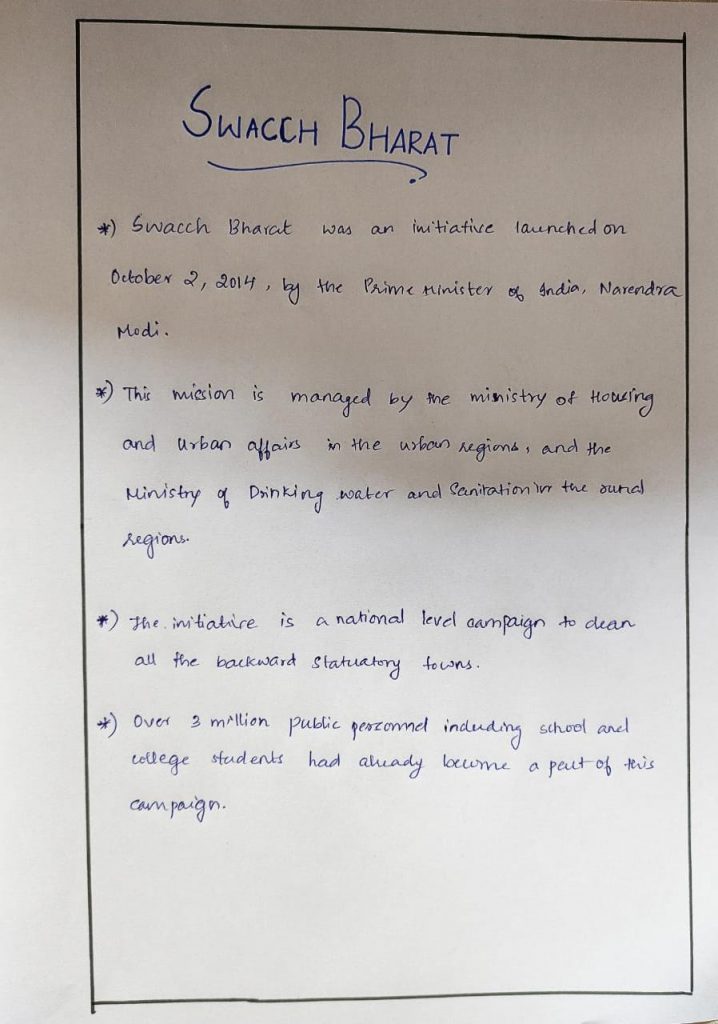 SWACCH BHARAT
*) Swacch Bharat was an initiative launched on
October 2, 2014, by the Prime Minister of India, Narendra
Modi.
*) This mission is managed by the ministry of Housing
and Urban affairs in the urban regions, and the
Ministry of Drinking water and Sanitation in the rural
regions.
*) The initiative is a national level campaign to clean
all the backward Statuatory towns.
*) Over 3 million public personnel including school and
college students had already become a part of this
campaign.